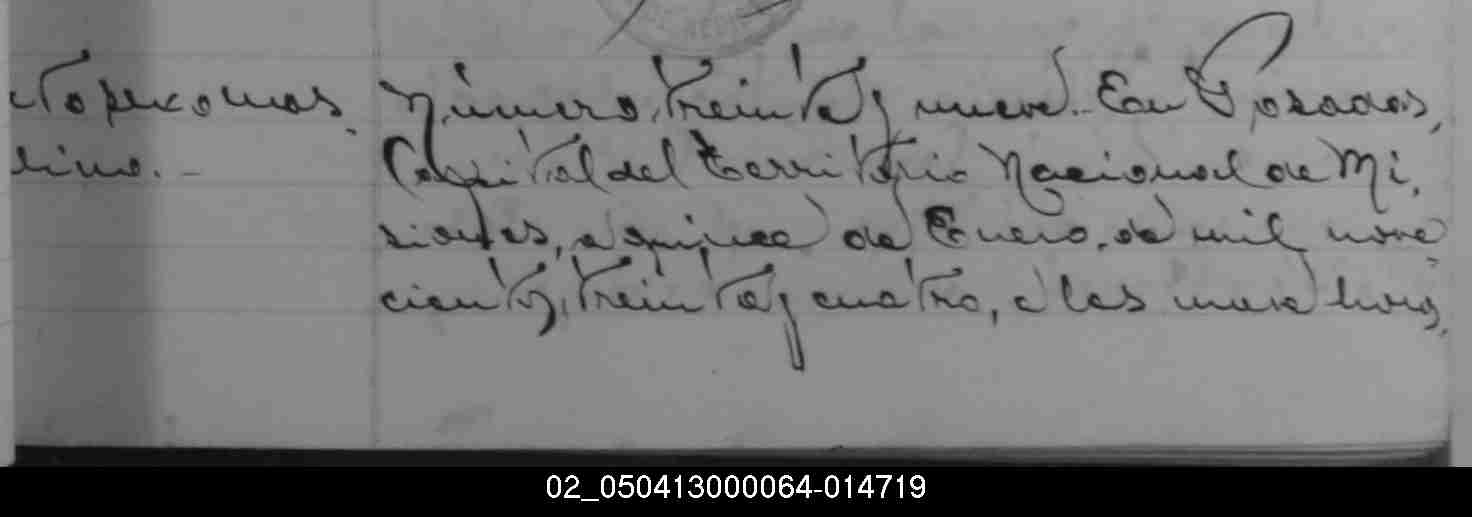 Número, treinta y nueve. En Posadas,
lino.- Capital del Territorio Nacional de Mi,
siones, a quince de Enero, de mil nove
cientos, treinta y cuatro, á las nueve horas,
02_050413000064-014719